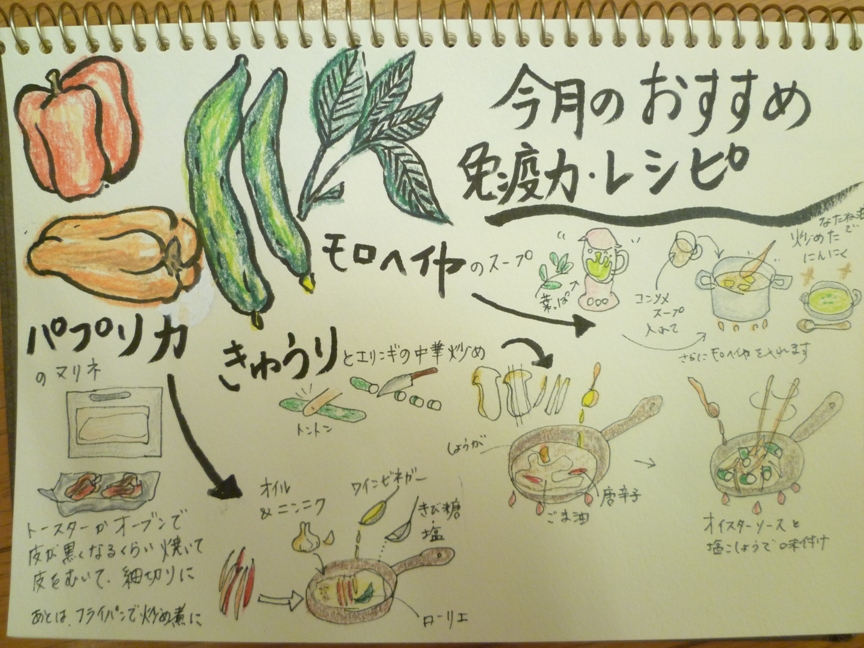 今月のおすすめ
免疫力・レシピ
モロヘイヤのスープ
葉っぱ
コンソメ
スープ
入れて
なたね油で
炒めた
にんにく
さらにモロヘイヤを入れます
きゅうりとエリンギの中華炒め
トントン
しょうが
ごま油
唐辛子
オイスターソースと
塩こしょうで味付け
パプリカ
のマリネ
トースターかオーブンで
皮が黒くなるくらい焼いて
皮をむいて、細切りに
あとは、フライパンで炒め煮に
オイル
&ニンニク
ワインビネガー
きび糖
塩
ローリエ